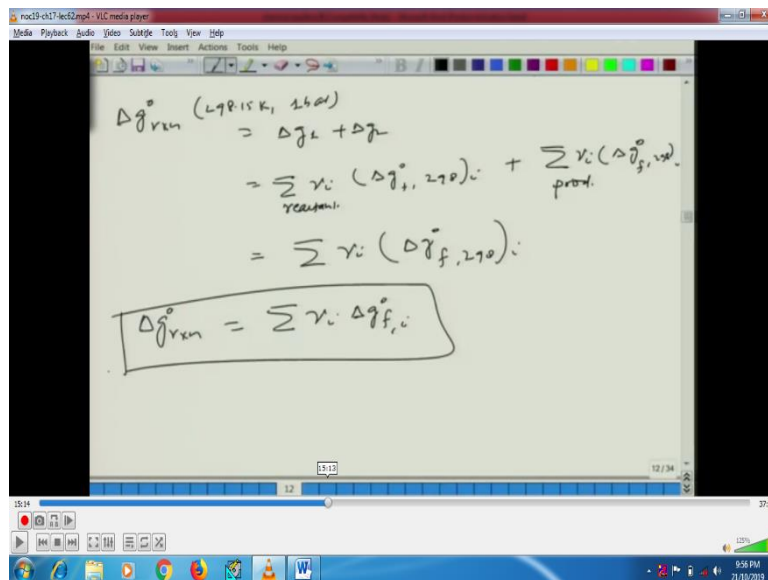 noc19-ch17-lec62.mp4 - VLC media player
Media Playback Audio Video Subtitle Tools View Help
File Edit View Insert Actions Tools Help
Δg°rxn (298.15K, 1bar)
= Δg1 + Δg2
= Σ νi (Δg°f, 298)i + Σ νi (Δg°f, 298)i
reactant. prod.
= Σ νi (Δg°f, 298)i
Δg°rxn = Σ νi Δg°f,i
15:13
12/34
12
15:14
37:
125%
9:56 PM
21/10/2019